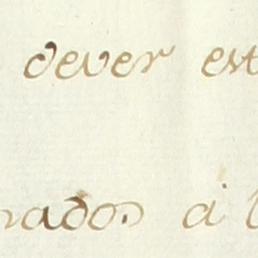 dever est
nados. à